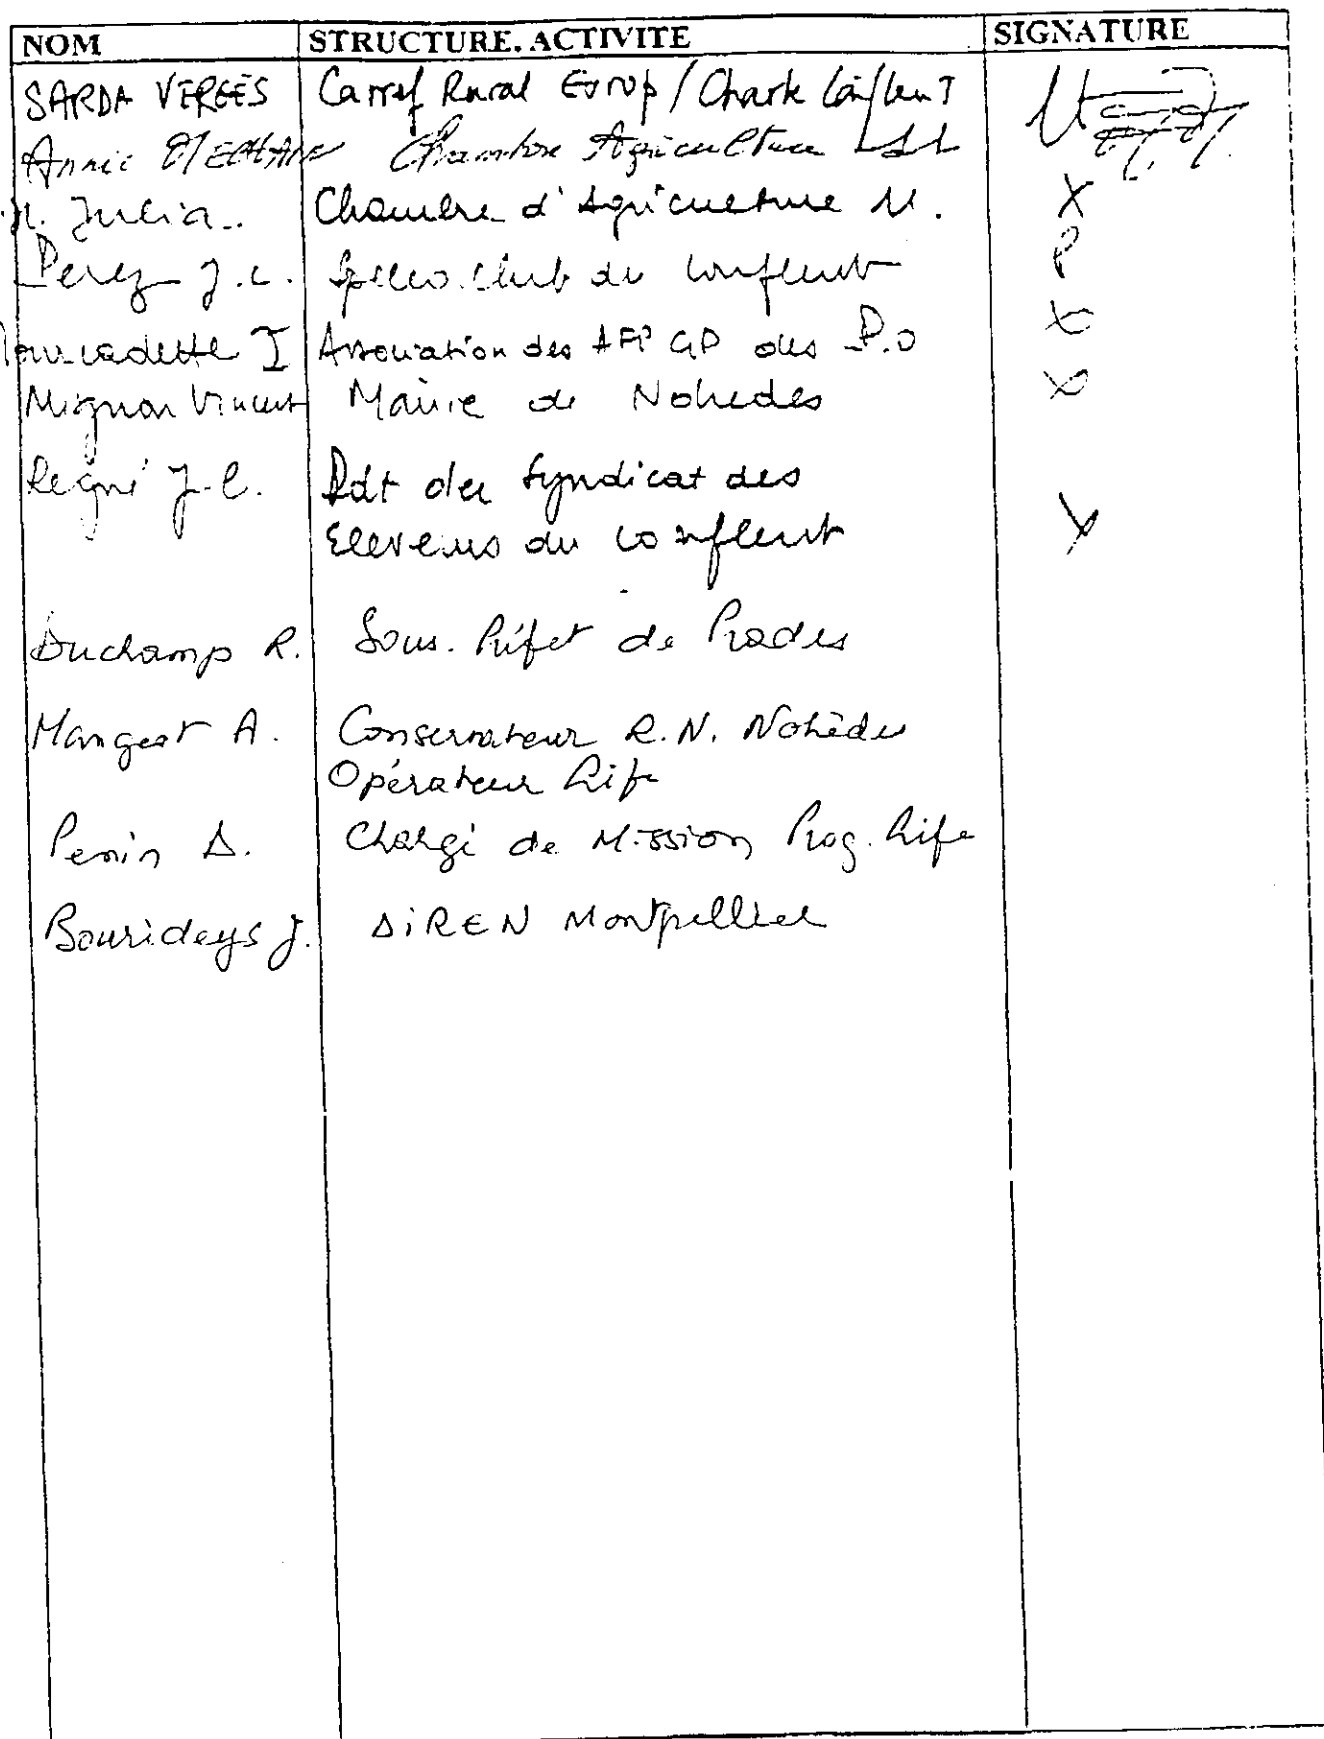 NOM STRUCTURE. ACTIVITE SIGNATURE
SARDA VERGÈS Carref Rural Europ / Charte Conflent
Annie Chambre Agriculture
Julia.. Chambre d'Agriculture M. X
Perez J.C. Speleo.Club du Conflent P
Association des AFP GP des P.O X
Mignon Vincent Mairie de Nohedes X
Regné J-C. Pdt du Syndicat des
Eleveurs du Conflent X
Duchamp R. Sous. Préfet de Prades
Mangeot A. Conservateur R.N. Nohèdes
Opérateur Life
D. Chargé de Mission Prog. Life
Bourideys J. DIREN Montpellier